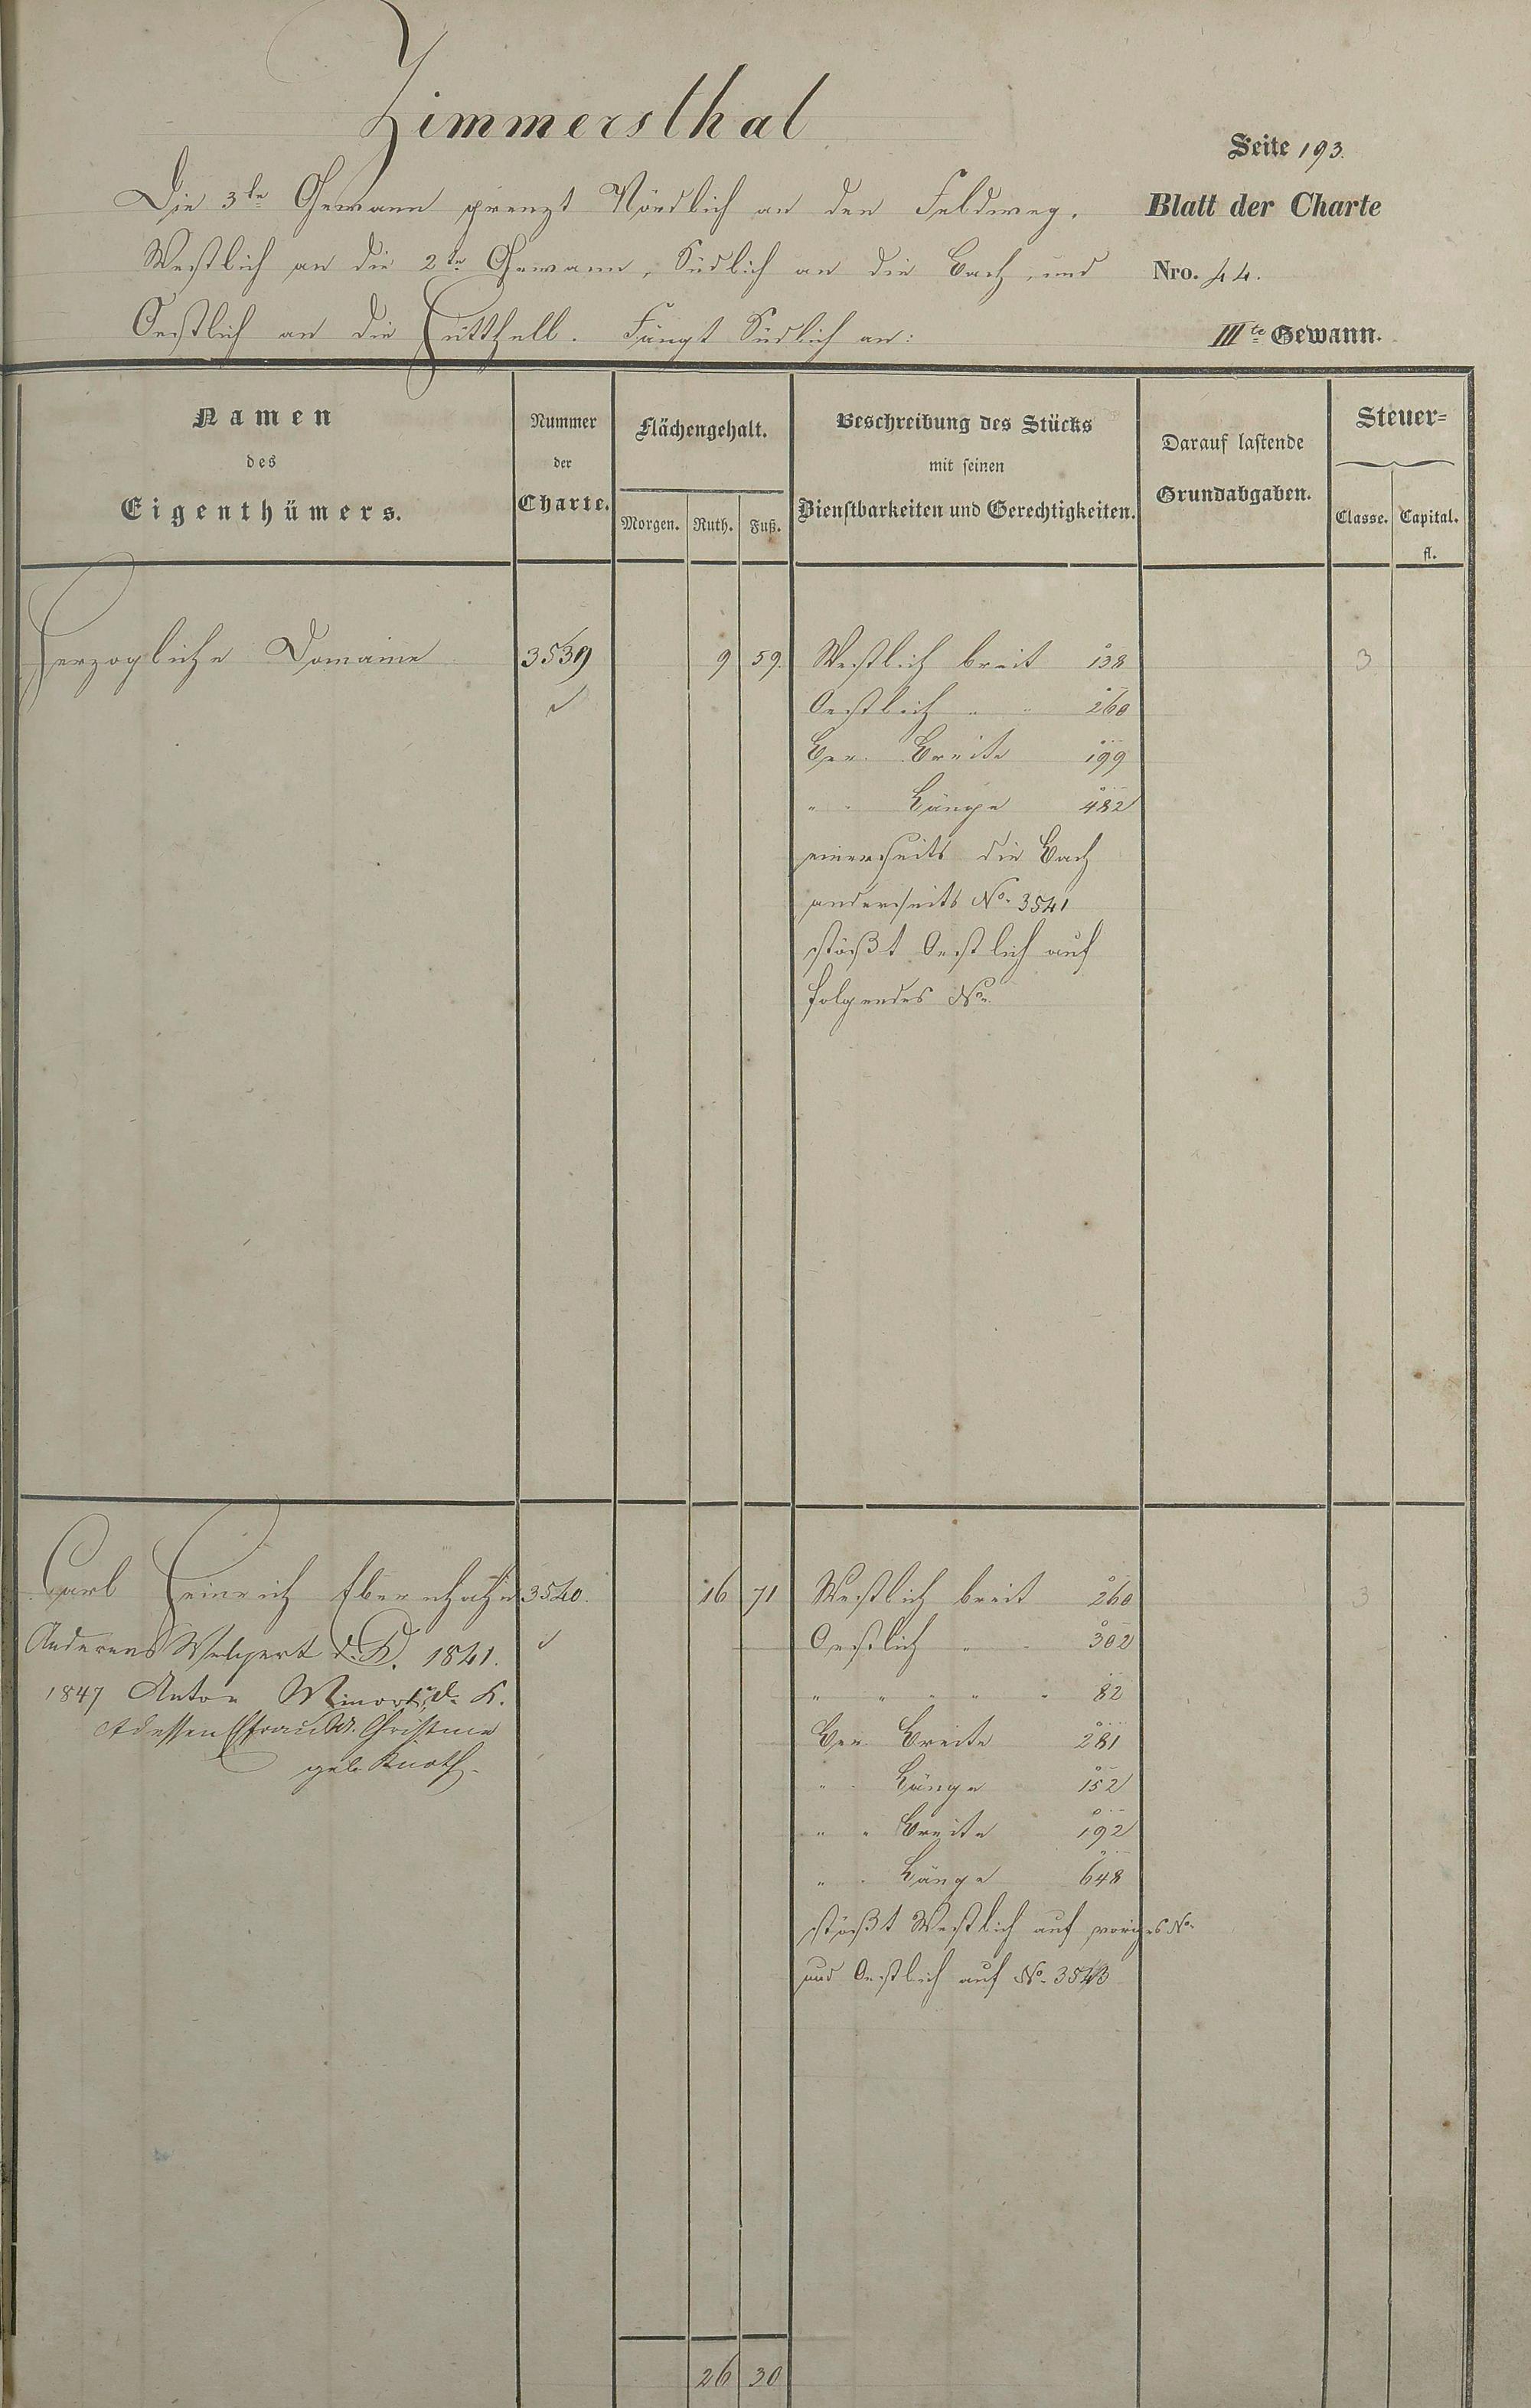 Zimmersthal
Seite 193.
Die 3te Gewann grenzt Nördlich an den Feldweg,
Blatt der Charte
Westlich an die 2te Gewann, Südlich an die Bach, und
Nro. 44.
Oestlich an die Hütthell. Fängt Südlich an:
IIIte Gewann.
Namen des Eigenthümers.
Nummer der Charte.
Flächengehalt.
Morgen. Ruth. Fuß.
Beschreibung des Stücks
mit seinen
Dienstbarkeiten und Gerechtigkeiten.
Darauf lastende
Grundabgaben.
Steuer=
Classe. Capital.
fl.
Herzogliche Domaine 3539 9 59. Westlich breit 138 3
Oestlich " " 260
Ber. Breite 199
" " Länge 482
einerseits die Bach
anderseits No. 3541
stößt Oestlich auf
folgendes No.
Carl Heinrich Ebernhahn 3540. 16 71 Westlich breit 260 3
1841. Oestlich " " 302
1847 Anton d. K. " " " " " 82
Christine Ber. Breite 281
geb. Knoth. " " Länge 152
" " Breite 192
" " Länge 648
stößt Westlich auf voriges No.
und Oestlich auf No. 3543
26 30